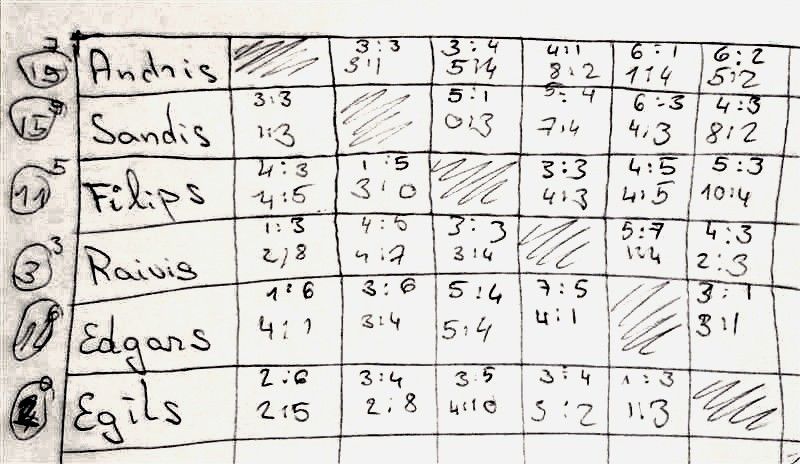 7 3:3 3:4 4:1 6:1 6:2
19 Andris 3:1 5:4 8:2 1:4 5:2
3:3 5:1 5:4 6:3 4:3
15 Sandis 1:3 0:3 7:4 4:3 8:2
5 4:3 1:5 3:3 4:5 5:3
11 Filips 4:5 3:0 4:3 4:5 10:4
3 1:3 4:5 3:3 5:7 4:3
3 Raivis 2:8 4:7 3:4 1:4 2:3
1:6 3:6 5:4 7:5 3:1
Edgars 4:1 3:4 5:4 4:1 3:1
0 2:6 3:4 3:5 3:4 1:3
Egils 2:5 2:8 4:10 3:2 1:3